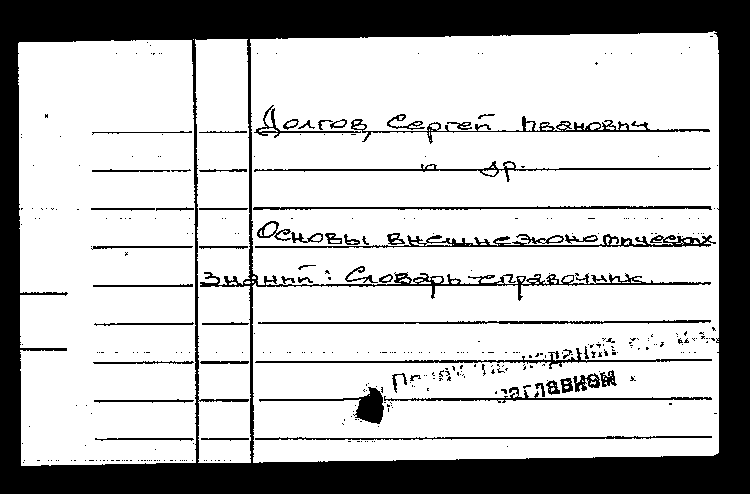 Долгов, Сергей Иванович
и др.
Основы внешнеэкономических
знаний: Словарь-справочник.
изданий
заглавием